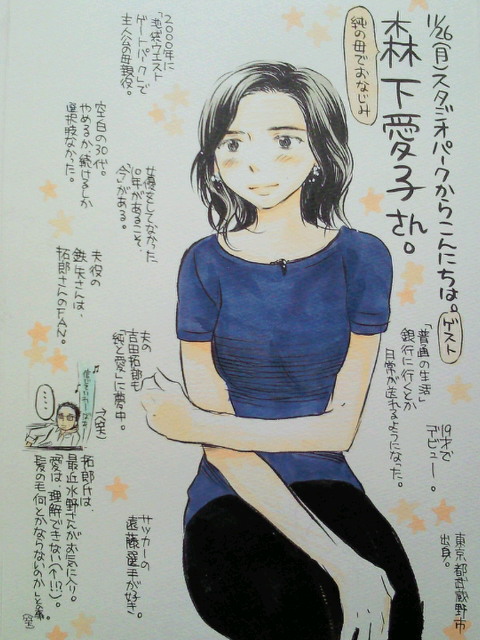 11/26(月)スタジオパークからこんにちは。
ゲスト
森下愛子さん。
純の母でおなじみ
19才で
デビュー。
東京都武蔵野市
出身。
「普通の生活」
銀行に行くとか
日常が送れるようになった。
2000年に
「池袋ウエスト
ゲートパーク」で
主人公の母親役。
空白の30代。
やめるか、続けるしか
選択肢なかった。
女優をしてなかった
10年があることで、
今がある。
夫役の
鉄矢さんは、
拓郎さんのFAN。
夫の
吉田拓郎も
「純と愛」に夢中。
(笑)
サッカーの
遠藤選手が好き。
拓郎氏は、
最近水野さんがお気に入り。
愛は、理解できない(↑!?)。
髪の毛何とかならないのか」との事。
(笑)